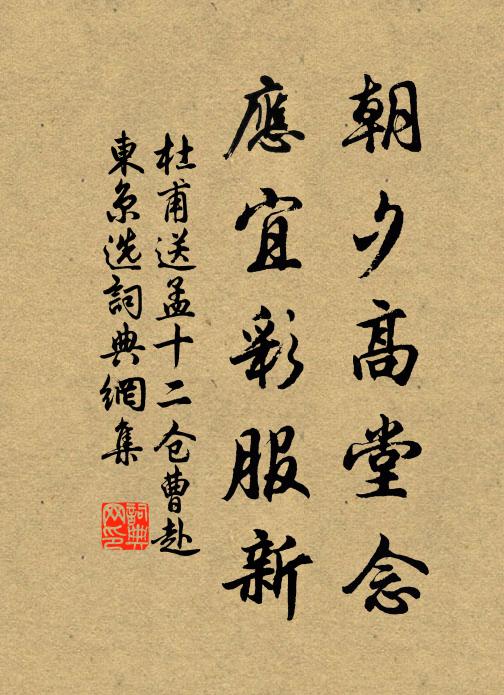 朝夕高堂念
應宜彩服新
杜甫送孟十二仓曹赴
東京选詞典網集
詞典网印